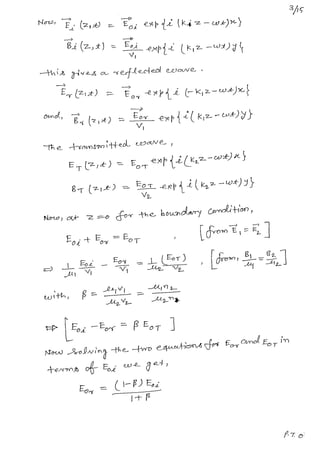 3/15
Now, E⃗i (z,t) = E⃗oi exp{i (kiz-wt)x}
B⃗i (z,t) = E⃗oi/V1 exp{i (k1z-wt)y}
this gives a reflected wave.
E⃗r (z,t) = E⃗or exp{i (-k1z-wt)x}
and, B⃗r (z,t) = E⃗or/V1 exp{i(k1z-wt)y}
The transmitted wave,
ET (z,t) = EOT exp{i(k2z-wt)x}
BT (z,t) = EOT/V2 exp{i(k2z-wt)y}
Now, at z=0 for the boundary condition,
Eoi + Eor = EOT , [from E⃗1 = E⃗2]
=> 1/μ1 Eoi/V1 - Eor/V1 = 1/μ2 (EOT)/V2 , [from, B1/μ1 = B2/μ2]
with, β = μ1V1/μ2V2 = μ1n2/μ2n1
=> [Eoi - Eor = β EOT]
Now solving the two equations for Eor and EOT in
terms of Eoi we get,
Eor = (1-β) Eoi / 1+β
P.T.O